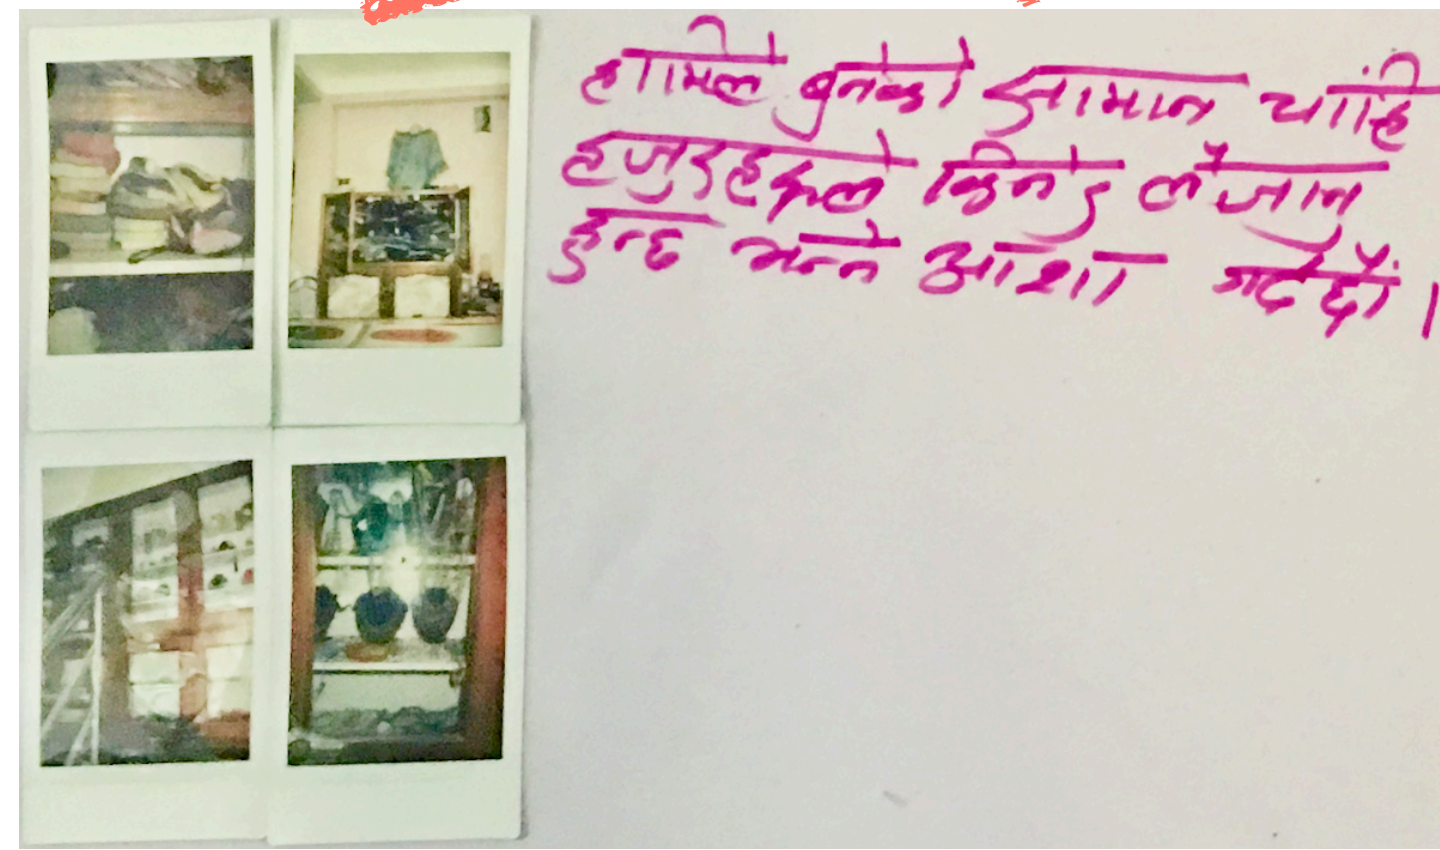 हामिले बुनेको सामान चाहि
हजुरहरूले किनेर लैजानु
हुन्छ भन्ने आशा गर्दछौं ।